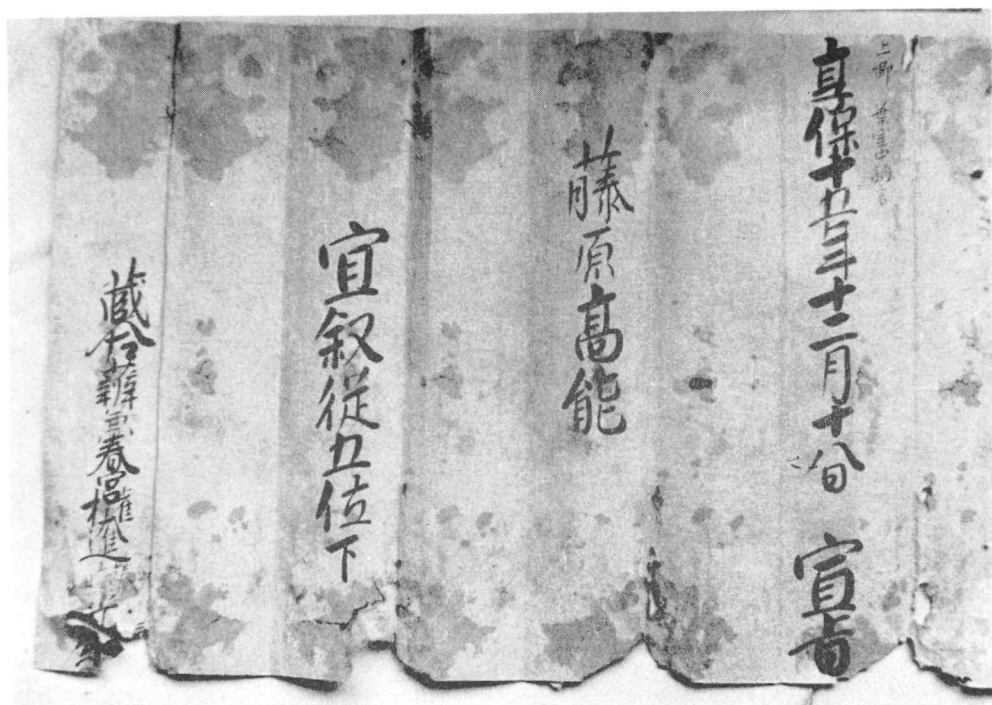 上卿 葉室中納言
享保十九年十二月十八日 宣旨
藤原高能
宜叙従五位下
蔵人辨兼春宮権大進